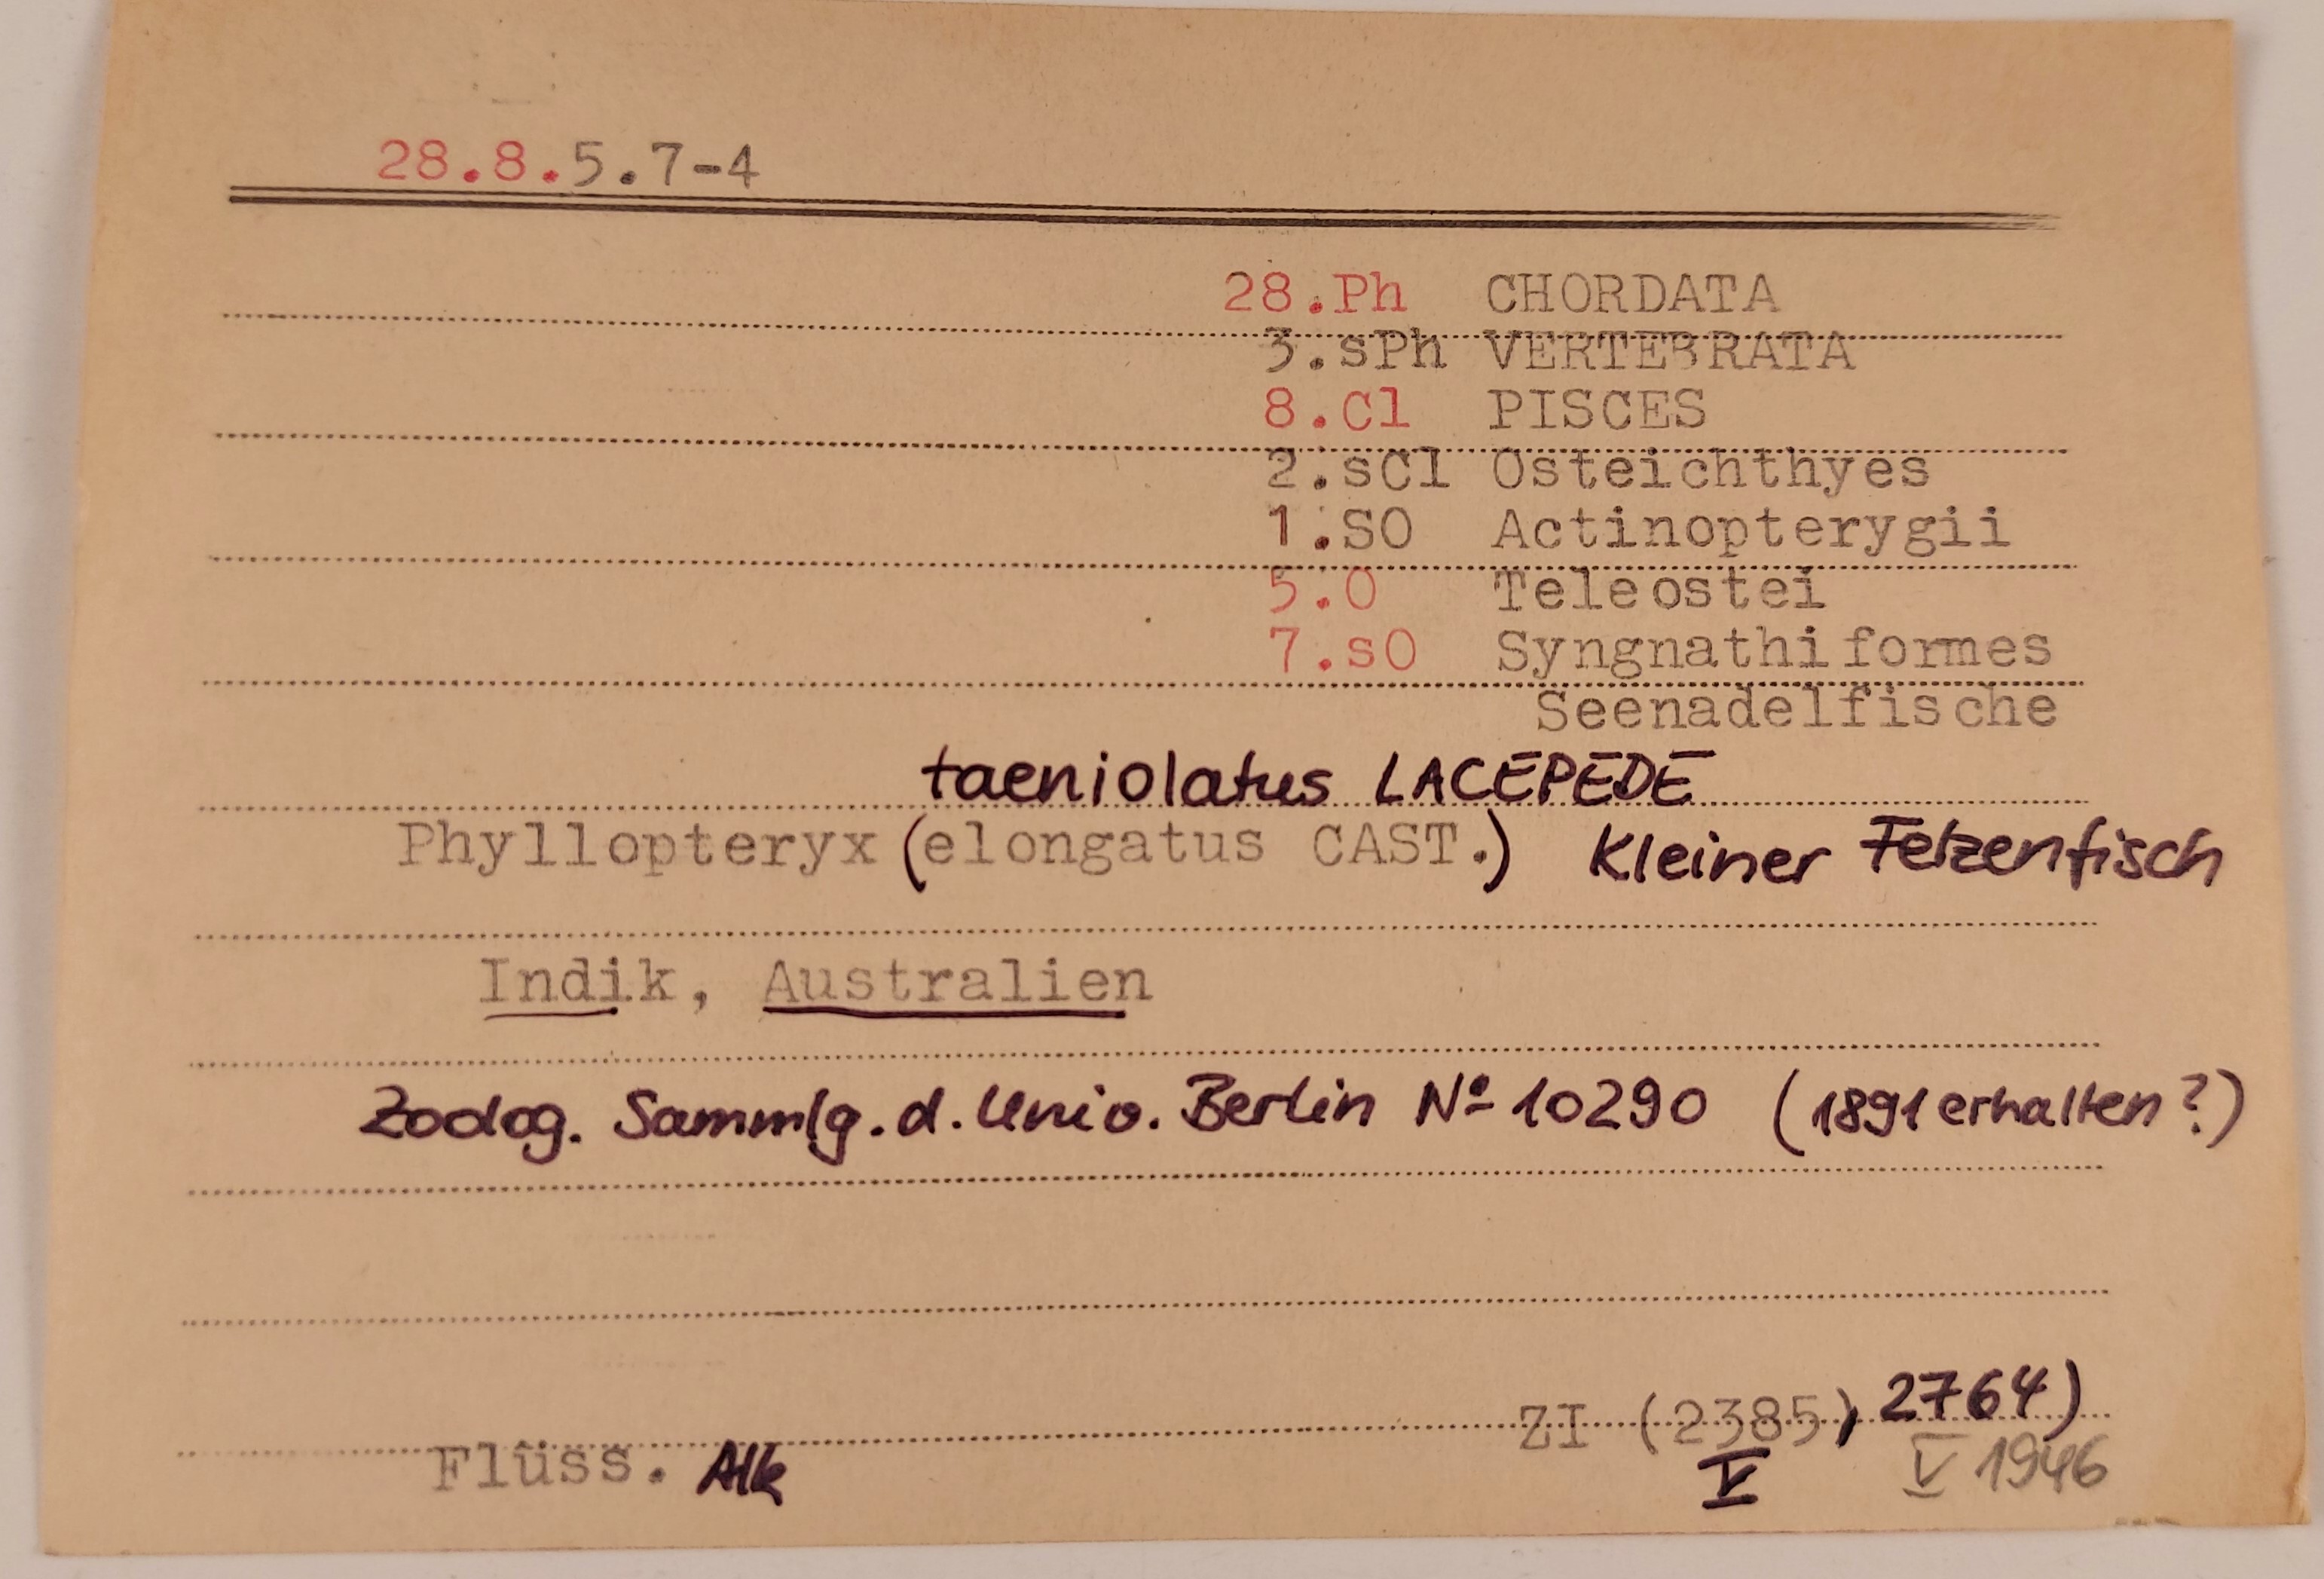 28.8.5.7-4
28.Ph CHORDATA
3.sPh VERTEBRATA
8.Cl PISCES
2.sCl Osteichthyes
1.SO Actinopterygii
5.O Teleostei
7.sO Syngnathiformes
Seenadelfische
taeniolatus LACÉPÈDE
Phyllopteryx (elongatus CAST.) Kleiner Fetzenfisch
Indik, Australien
Zoolog. Sammlg. d. Univ. Berlin Nº 10290 (1891 erhalten?)
ZI (2385), 2764)
Flüss. Alk V V 1946